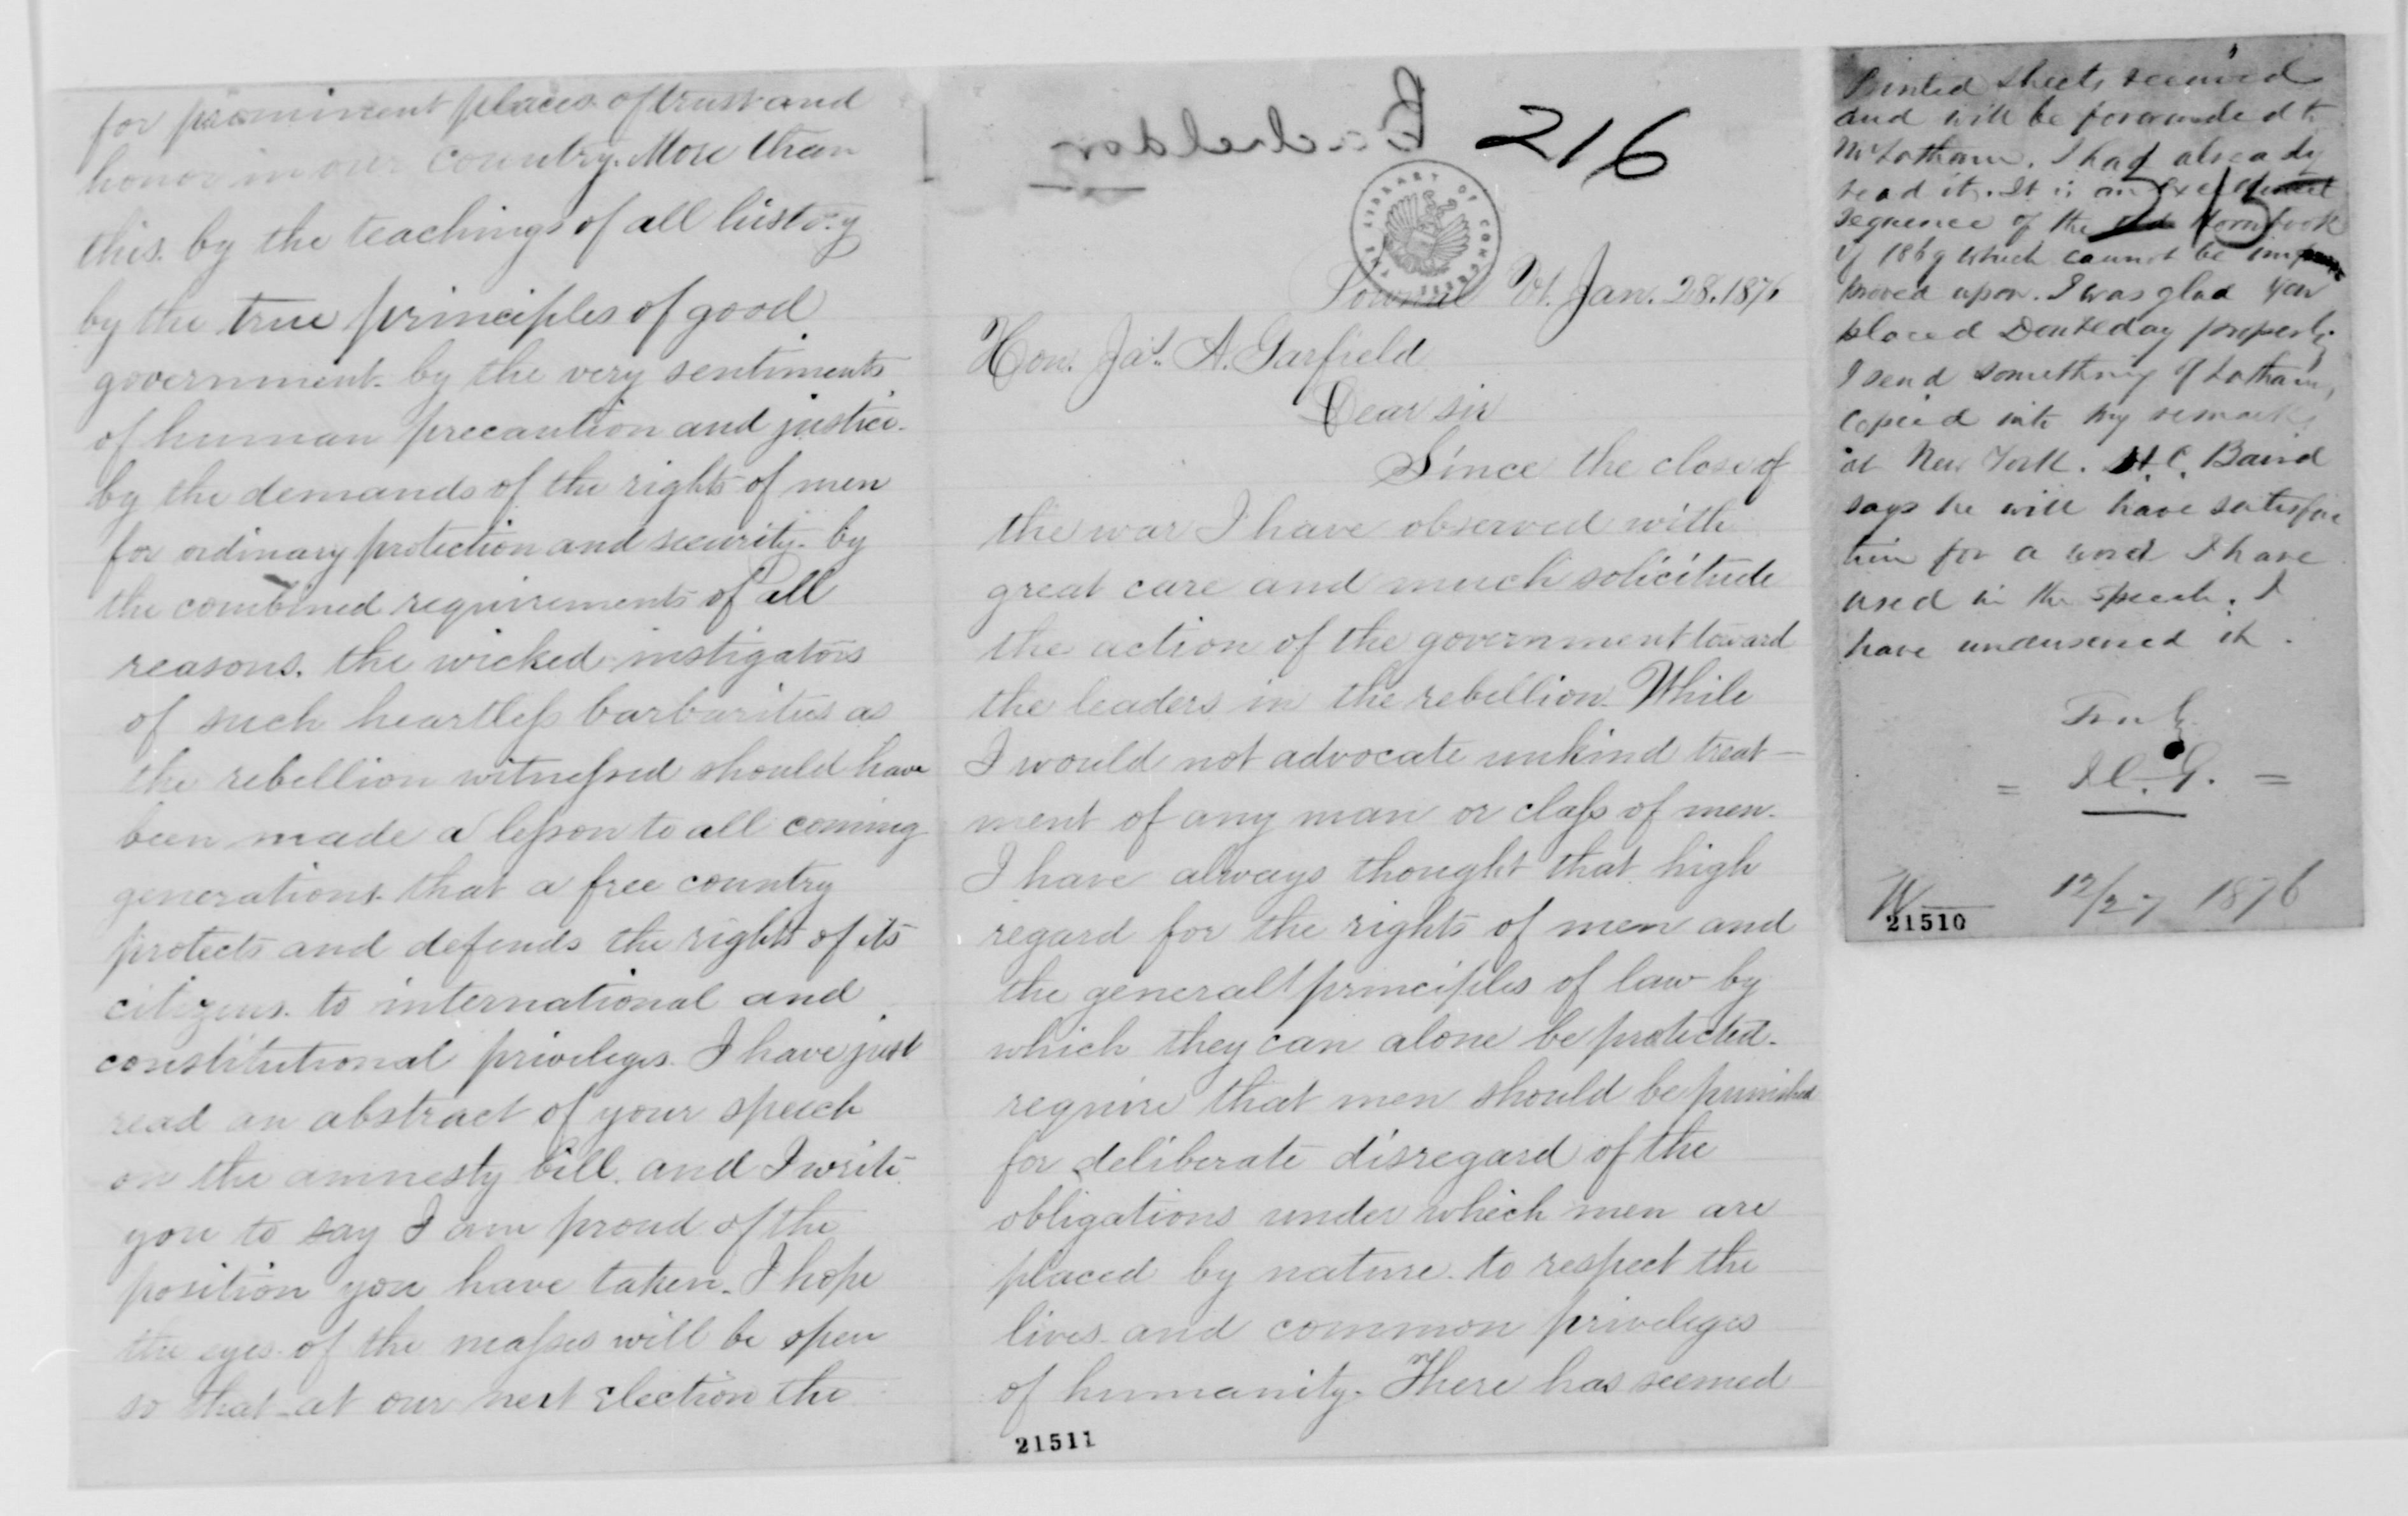 for prominent places of trust and
honor in our country. More than
this. by the teachings of all history
by the true principles of good
government. by the very sentiments
of human precaution and justice.
by the demands of the rights of men
for ordinary protection and security. by
the combined requirements of all
reasons. the wicked instigators
of such heartless barbarities as
the rebellion witnessed should have
been made a lesson to all coming
generations. that a free country
protects and defends the rights of its
citizens. to international and
constitutional privileges. I have just
read an abstract of your speech
on the amnesty bill. and I write
you to say I am proud of the
position you have taken. I hope
the eyes of the masses will be open
so that at our next election the
Bacheldor
216
THE LIBRARY OF CONGRESS
Pownal Vt. Jan. 28. 1876
Hon. Jas. A. Garfield
Dear sir
Since the close of
the war I have observed with
great care and much solicitude
the action of the government toward
the leaders in the rebellion. While
I would not advocate unkind treat-
ment of any man or class of men.
I have always thought that high
regard for the rights of men and
the general principles of law by
which they can alone be protected.
require that men should be punished
for deliberate disregard of the
obligations under which men are
placed by nature. to respect the
lives and common privileges
of humanity. There has seemed
21511
Printed sheets received
and will be forwarded to
Mr Latham. I had already
read it. It is an excellent
215
sequence of the Hornbook
of 1869 which cannot be im
proved upon. I was glad you
placed Doubleday properly
I send something of Latham,
copied into my remarks
at New York. H. C. Baird
says he will have satisfac
tion for a word I have
used in the speech. I
have underscored it.
Truly
= J. C. G. =
12/27 1876
21510